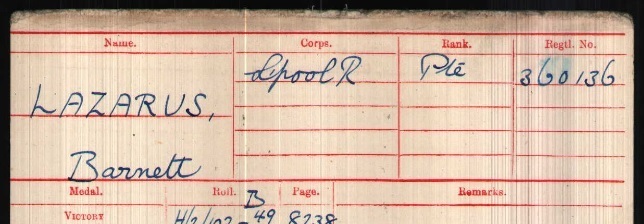 Name. Corps. Rank. Regtl. No.
L'pool R Pte 360136
LAZARUS,
Barnett
Medal. Roll. Page. Remarks.
B
VICTORY 49 8238